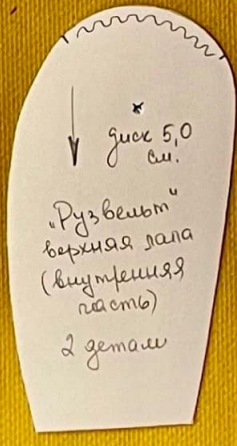 диск 5,0
см.
„Рузвельт"
верхняя лапа
(внутренняя
часть)
2 детали